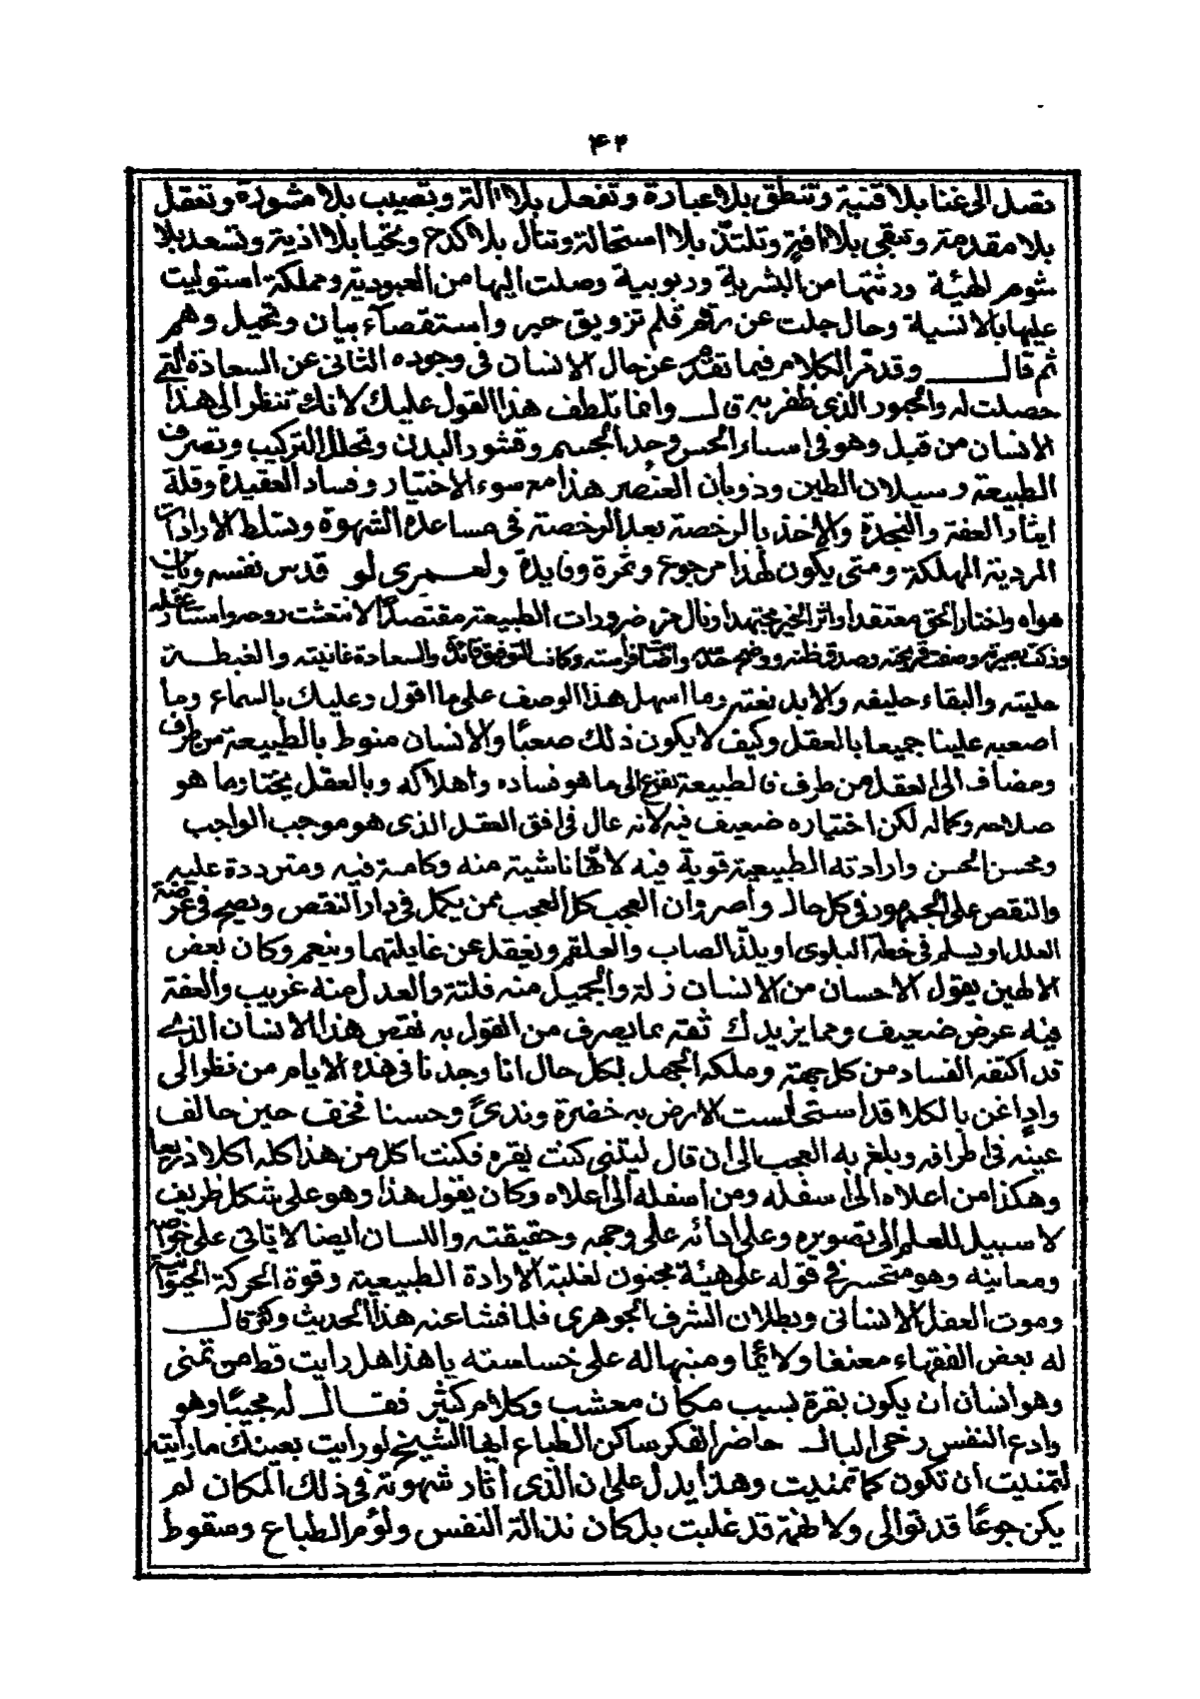 ۴۲
تصل الى غنا بلا قنية وتنطق بلا عبارة وتفعل بلا آلة وتصيب بلا مشورة وتعقل
بلا مقدمة وتبقى بلا آفة وتلتذ بلا استحالة وتنال بلا كدح وتحيا بلا اذية وتسعد بلا
شوم الهيئة ورثتها من البشرية وربوبية وصلت اليها من العبودية ومملكة استوليت
عليها بالانسية وحال جلت عن رقم قلم تزويق حبر واستقصآء بيان وتخيل وهم
ثم قال وقد مر الكلام فيما تقدم عن حال الانسان فى وجوده الثانى عن السعادة التى
حصلت له والحبور الذى ظفر به قال وانما تلطف هذا القول عليك لانك تنظر الى هذا
الانسان من قبل وهو فى اسداء الحس وحد الجسم وقشور البدن وتحلل التركيب وتصرف
الطبيعة وسيلان الطين وذوبان العنصر هذا مع سوء الاختيار وفساد العقيدة وقلة
ايثار العفة والنجدة والاخذ بالرخصة بعد الرخصة فى مساعدة الشهوة وتسلط الارادات
المردية المهلكة ومتى يكون لهذا مرجوع وثمرة وفايدة ولعمرى لو قدس نفسه
هواه واختار الحق معتقدا واثر الخير مجتهدا ونال من ضرورات الطبيعة مقتصدا لانتعشت روحه
وذكت بصيرته وصفت قريحته وصدق ظنه ووضح وكان التوفيق قائده والسعادة غايته والغبطة
حليته والبقاء حليفه والابد نعته وما اسهل هذا الوصف على ما اقول وعليك بالسماع وما
اصعبه علينا جميعا بالعقل وكيف لا يكون ذلك صعبا والانسان منوط بالطبيعة من طرف
ومضاف الى العقل من طرف فالطبيعة يفزع الى ما هو فساده واهلاكه وبالعقل يختار ما هو
صلاحه وكماله لكن اختياره ضعيف فيه لانه عال فى افق العقل الذى هو موجب الواجب
ومحسن الحسن وارادته الطبيعية قوية فيه لانها ناشية منه وكامنة فيه ومترددة عليه
والنقص على الجمهور فى كل حال وان العجب كل العجب ممن يكمل فى دار النقص ويصح فى عرضة
العلل او يسلم فى خطة البلوى او يلذ الصاب والعلقم ويغفل عن غايلتهما وينعم وكان بعض
الالهين يقول الاحسان من الانسان زلة والجميل منه فلتة والعدل منه غريب والعفة
فيه عرض ضعيف ومما يزيدك ثقة بما يصرف من القول به نقص هذا الانسان الذى
قد اكنفه الفساد من كل جهة وملكه الجهل بكل حال انا وجدنا فى هذه الايام من نظر الى
واد اغن بالكلا قد استحلست الارض به خضرة وندى وحسنا فخف حين جالت
عينه فى اطرافه وبلغ به العجب الى ان قال ليتنى كنت بقرة فكنت اكل من هذا كله اكلا ذريعا
وهكذا من اعلاه الى اسفله ومن اسفله الى اعلاه وكان يقول هذا وهو على شكل ظريف
لا سبيل للعلم الى تصويره وعلى ادائه على وجهه وحقيقته واللسان ايضا لا ياتى على خواصه
ومعانيه وهو متحسر فى قوله على هيئة مجنون لغلبة الارادة الطبيعية وقوة الحركة الحيوانية
وموت العقل الانسانى وبطلان الشرف الجوهرى فلما فشا عنه هذا الحديث وكثر قال
له بعض الفقهاء معنفا ولائما ومنبها له على خساسته يا هذا هل رايت قط من تمنى
وهو انسان ان يكون بقرة بسبب مكان معشب وكلام كثير فقال له مجيبا وهو
وادع النفس رخى البال حاضر الفكر ساكن الطباع ايها الشيخ لو رايت بعينك ما رايته
لتمنيت ان تكون كما تمنيت وهذا يدل على ان الذى اثار شهوته فى ذلك المكان لم
يكن جوعا قد توالى ولا نهمة قد غلبت بل كان نذالة النفس ولؤم الطباع وسقوط